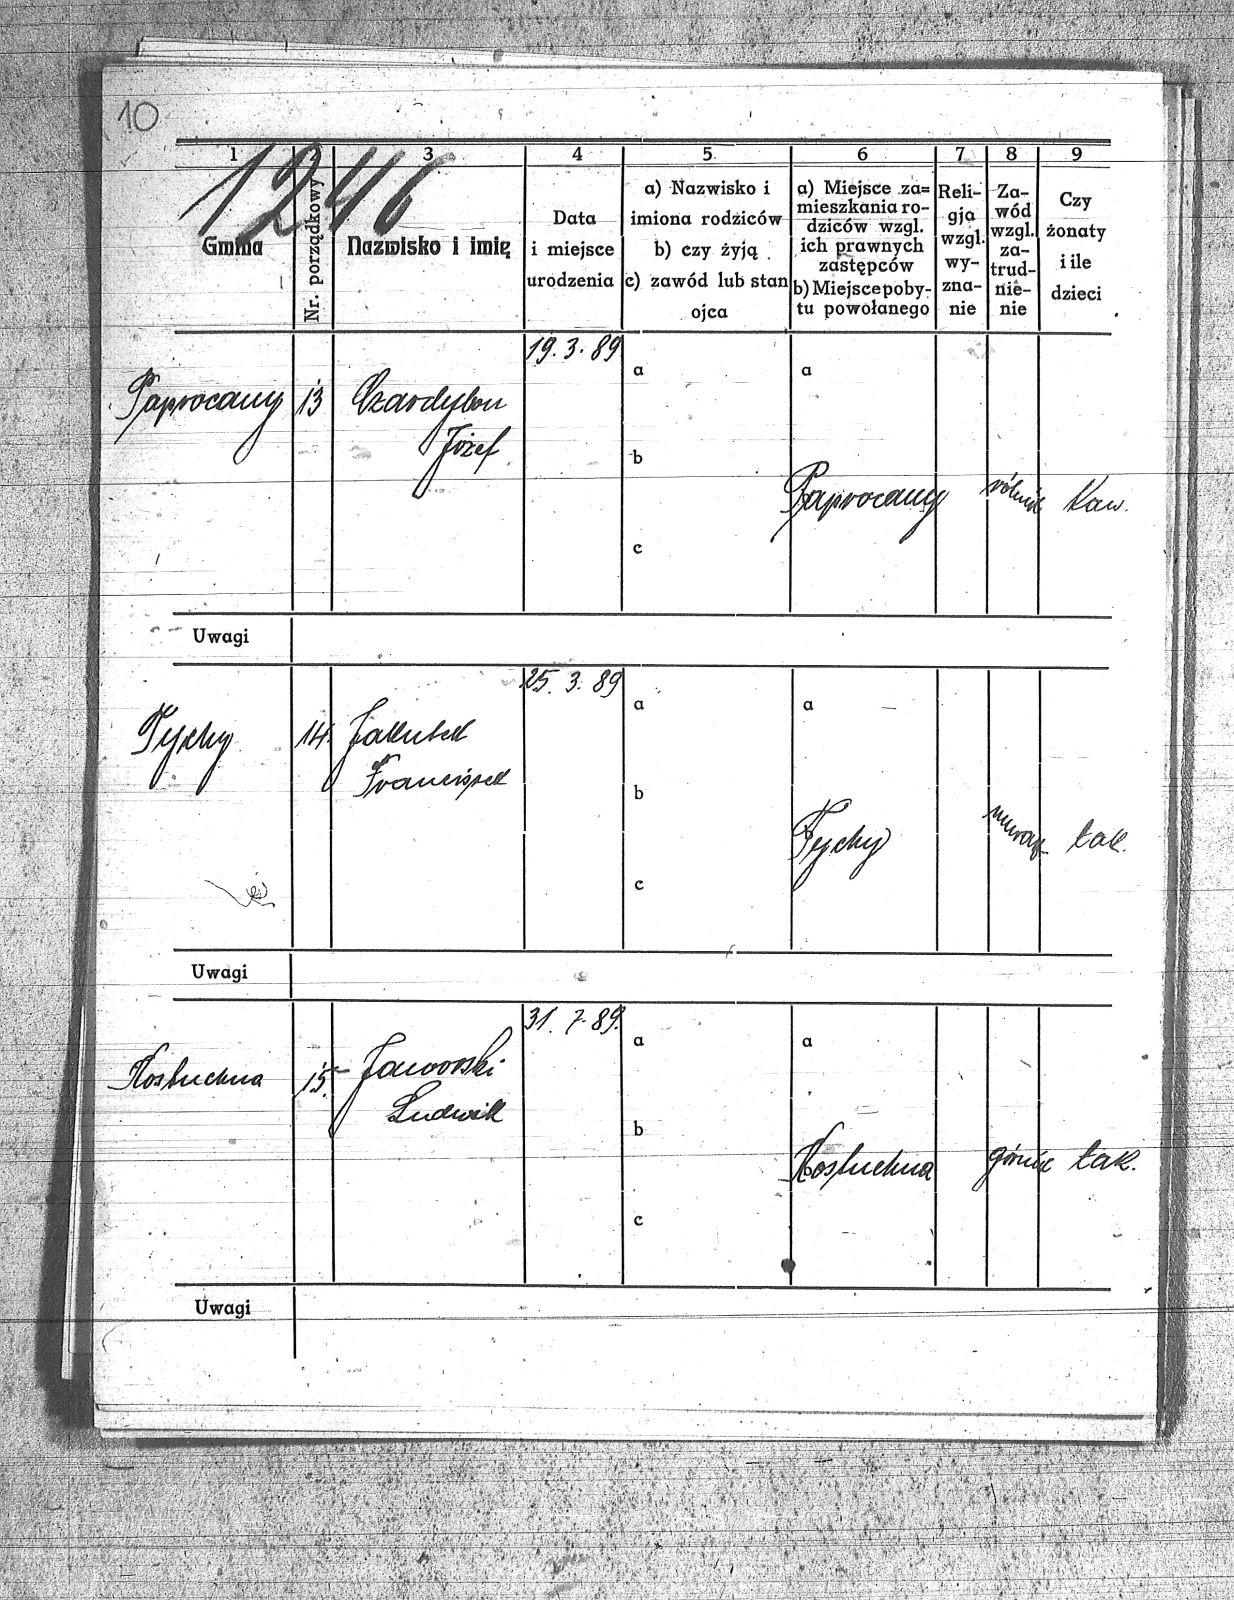 10
1246
1 2 3 4 5 6 7 8 9
Gmina
Nr. porządkowy
Nazwisko i imię
Data
i miejsce
urodzenia
a) Nazwisko i
imiona rodziców
b) czy żyją
c) zawód lub stan
ojca
a) Miejsce za=
mieszkania ro-
dziców wzgl.
ich prawnych
zastępców
b) Miejsce poby-
tu powołanego
Reli-
gja
wzgl.
wy-
zna-
nie
Za-
wód
wzgl.
za-
trud-
nie-
nie
Czy
żonaty
i ile
dzieci
Paprocany
13
Czardybon
Józef
19. 3. 89
a
b
c
a
Paprocany
rolnik
kaw.
Uwagi
Tychy
14.
Jakubek
Franciszek
25. 3. 89
a
b
c
a
Tychy
murarz
tak.
Uwagi
Kostuchna
15.
Jaworski
Ludwik
31. 7. 89.
a
b
c
a
Kostuchna
górnik
tak.
Uwagi